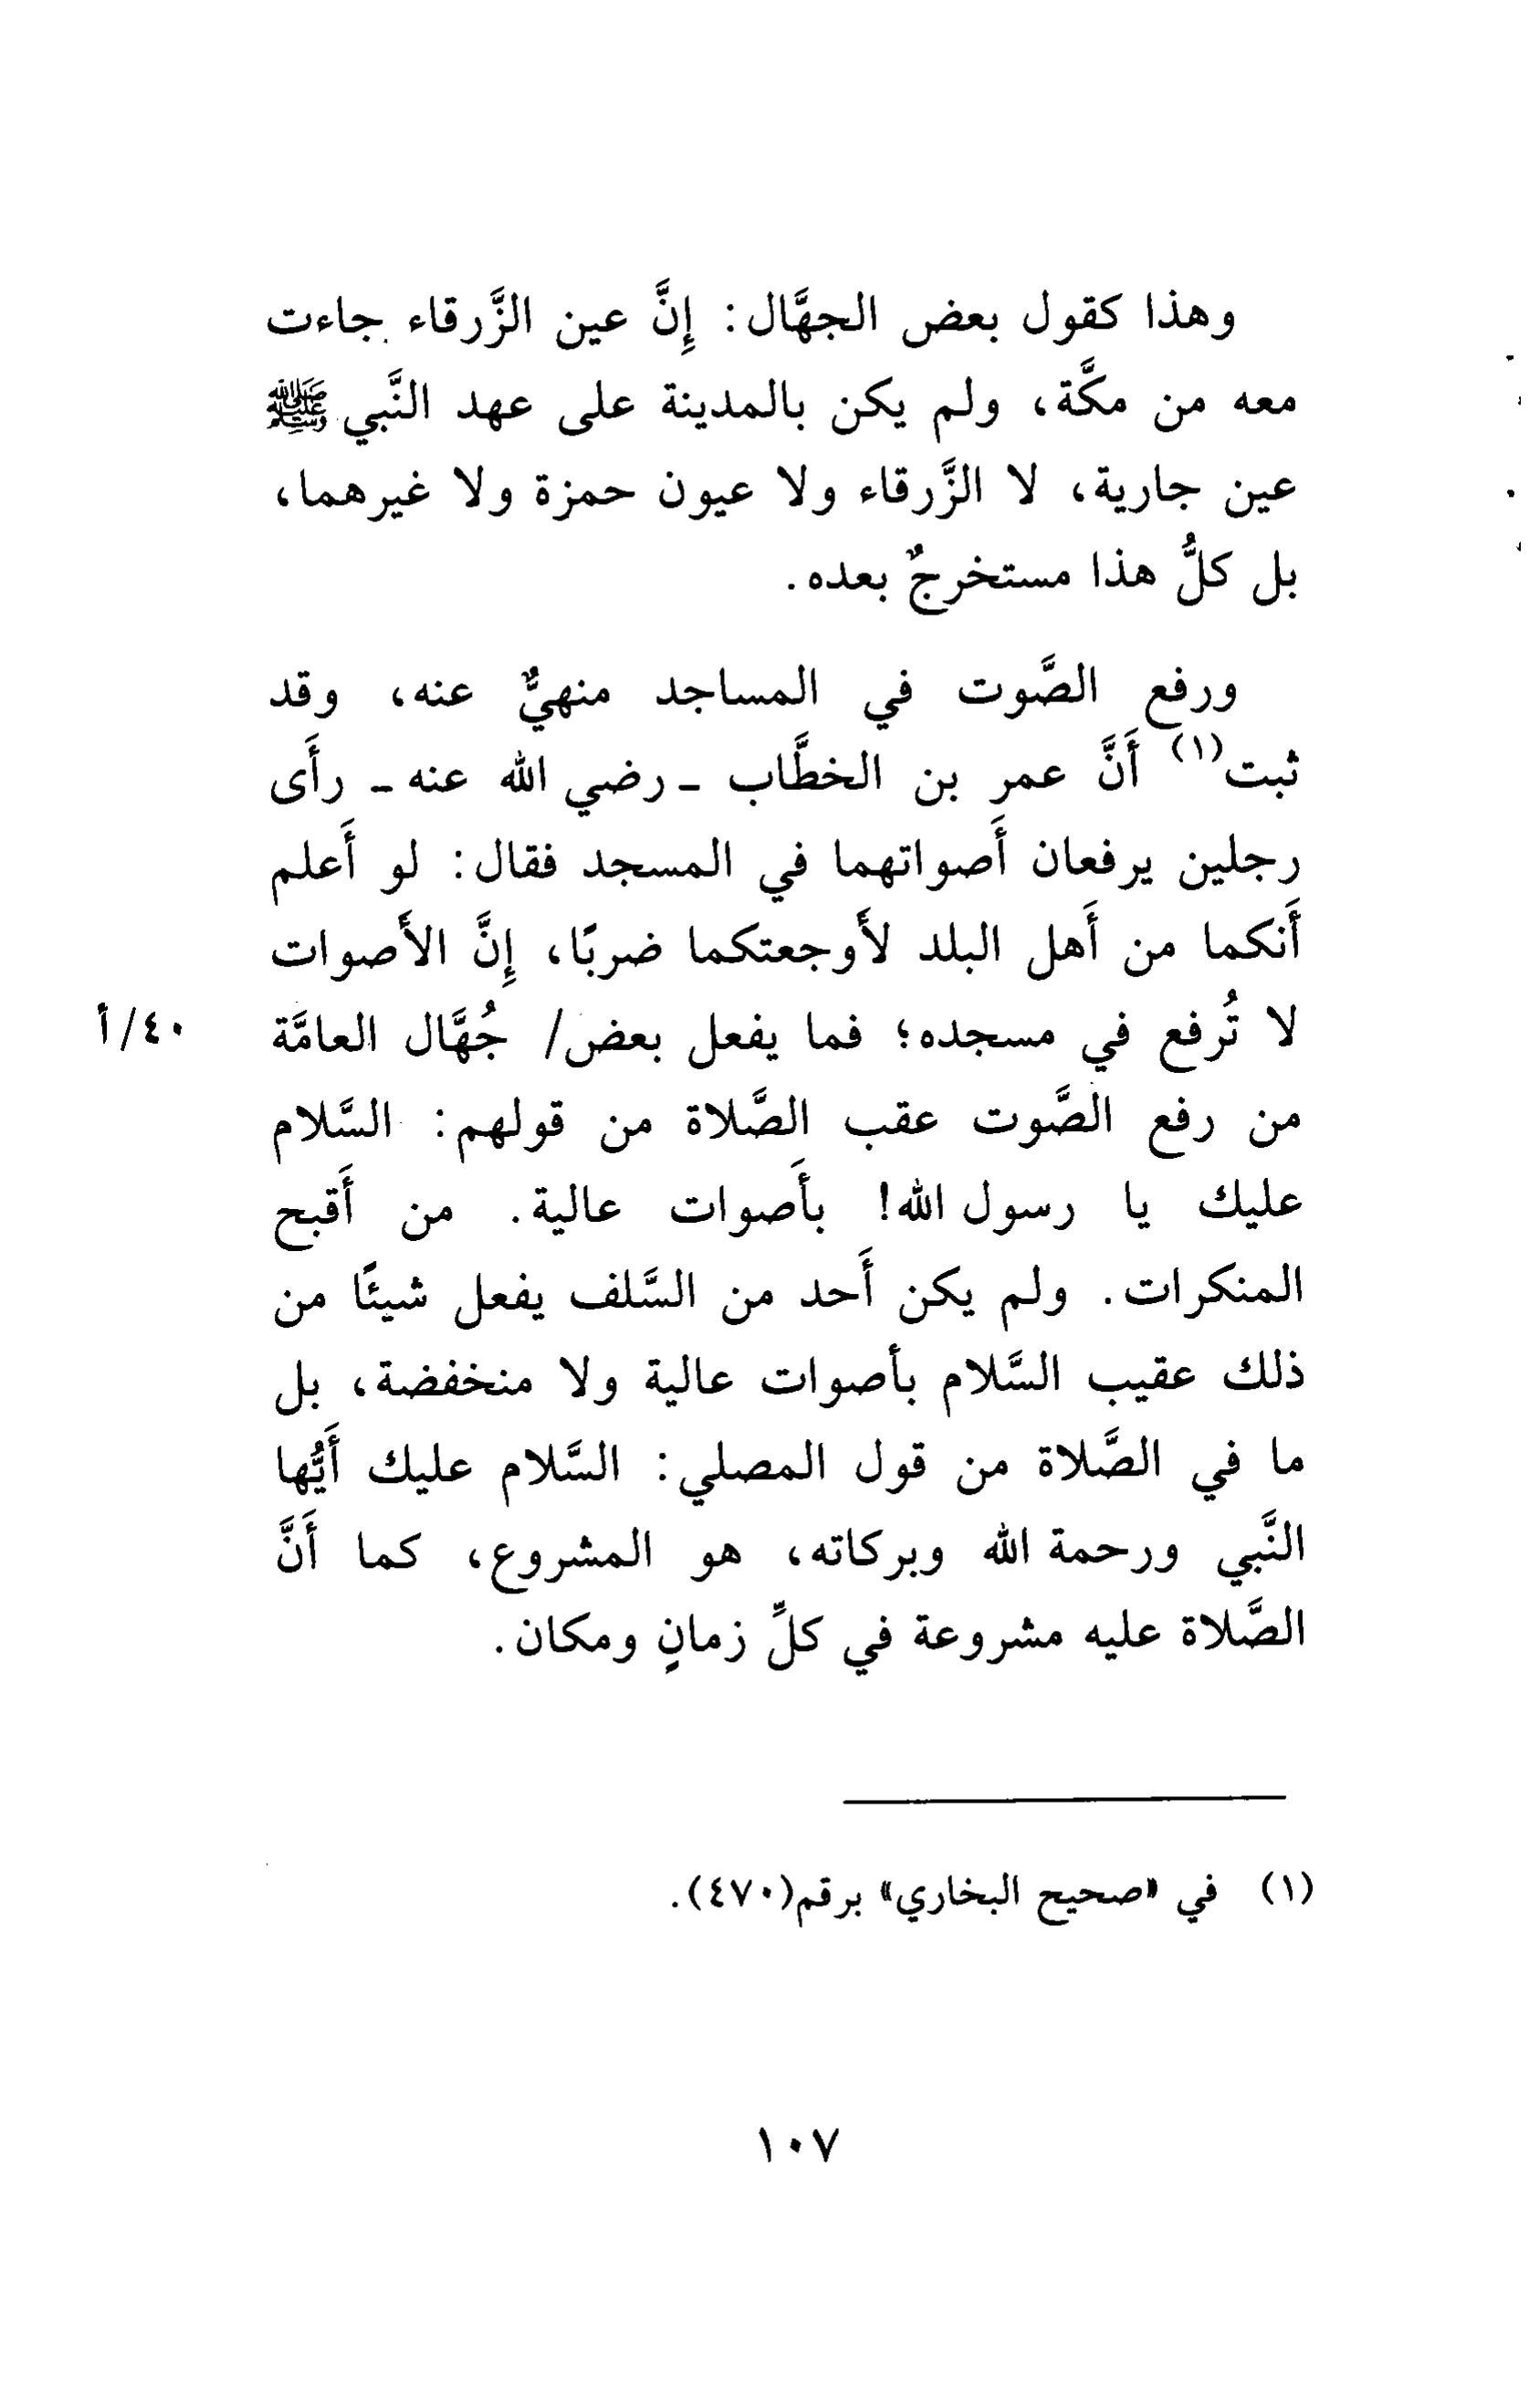 وهذا كقول بعض الجهَّال: إِنَّ عين الزَّرقاء جاءت
معه من مكَّة، ولم يكن بالمدينة على عهد النَّبي ﷺ
عين جارية، لا الزَّرقاء ولا عيون حمزة ولا غيرهما،
بل كلُّ هذا مستخرجٌ بعده.
ورفع الصَّوت في المساجد منهيٌّ عنه، وقد
ثبت(١) أَنَّ عمر بن الخطَّاب ـ رضي الله عنه ـ رأَى
رجلين يرفعان أَصواتهما في المسجد فقال: لو أَعلم
أَنكما من أَهل البلد لأَوجعتكما ضربًا، إِنَّ الأَصوات
لا تُرفع في مسجده؛ فما يفعل بعض/ جُهَّال العامَّة
٤٠/أ
من رفع الصَّوت عقب الصَّلاة من قولهم: السَّلام
عليك يا رسول الله! بأَصوات عالية. من أَقبح
المنكرات. ولم يكن أَحد من السَّلف يفعل شيئًا من
ذلك عقيب السَّلام بأصوات عالية ولا منخفضة، بل
ما في الصَّلاة من قول المصلي: السَّلام عليك أَيُّها
النَّبي ورحمة الله وبركاته، هو المشروع، كما أَنَّ
الصَّلاة عليه مشروعة في كلِّ زمانٍ ومكان.
(١) في «صحيح البخاري» برقم(٤٧٠).
١٠٧